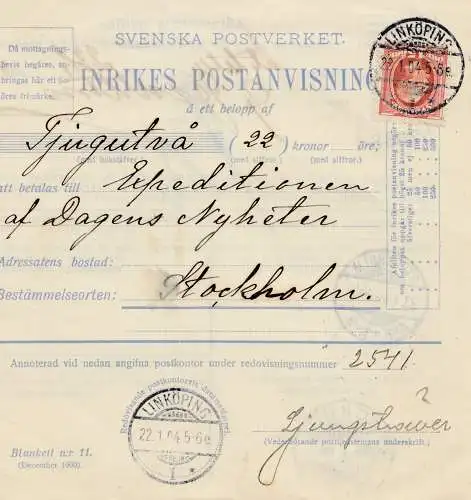 SVENSKA POSTVERKET.
Då mottagnings-
bevis begäres, an-
bringas här ett f
öres frimärke.
INRIKES POSTANVISNING
å ett belopp af
Tjugutvå (22) kronor öre;
(med bokstäfver) (med siffror.) (med siffror.)
att betalas till Expeditionen
af Dagens Nyheter
Adressatens bostad:
Bestämmelseorten: Stockholm.
Annoterad vid nedan angifna postkontor under redovisningsnummer 2541
Redovisande postkontorets datumstämpel.
LINKÖPING
22.1.04.5-6e.
1
LINKÖPING
1.04.5-6e.
Ljungs
(Vederbörande posttjänstemans underskrift.)
Blankett n:r 11.
(December 1900).